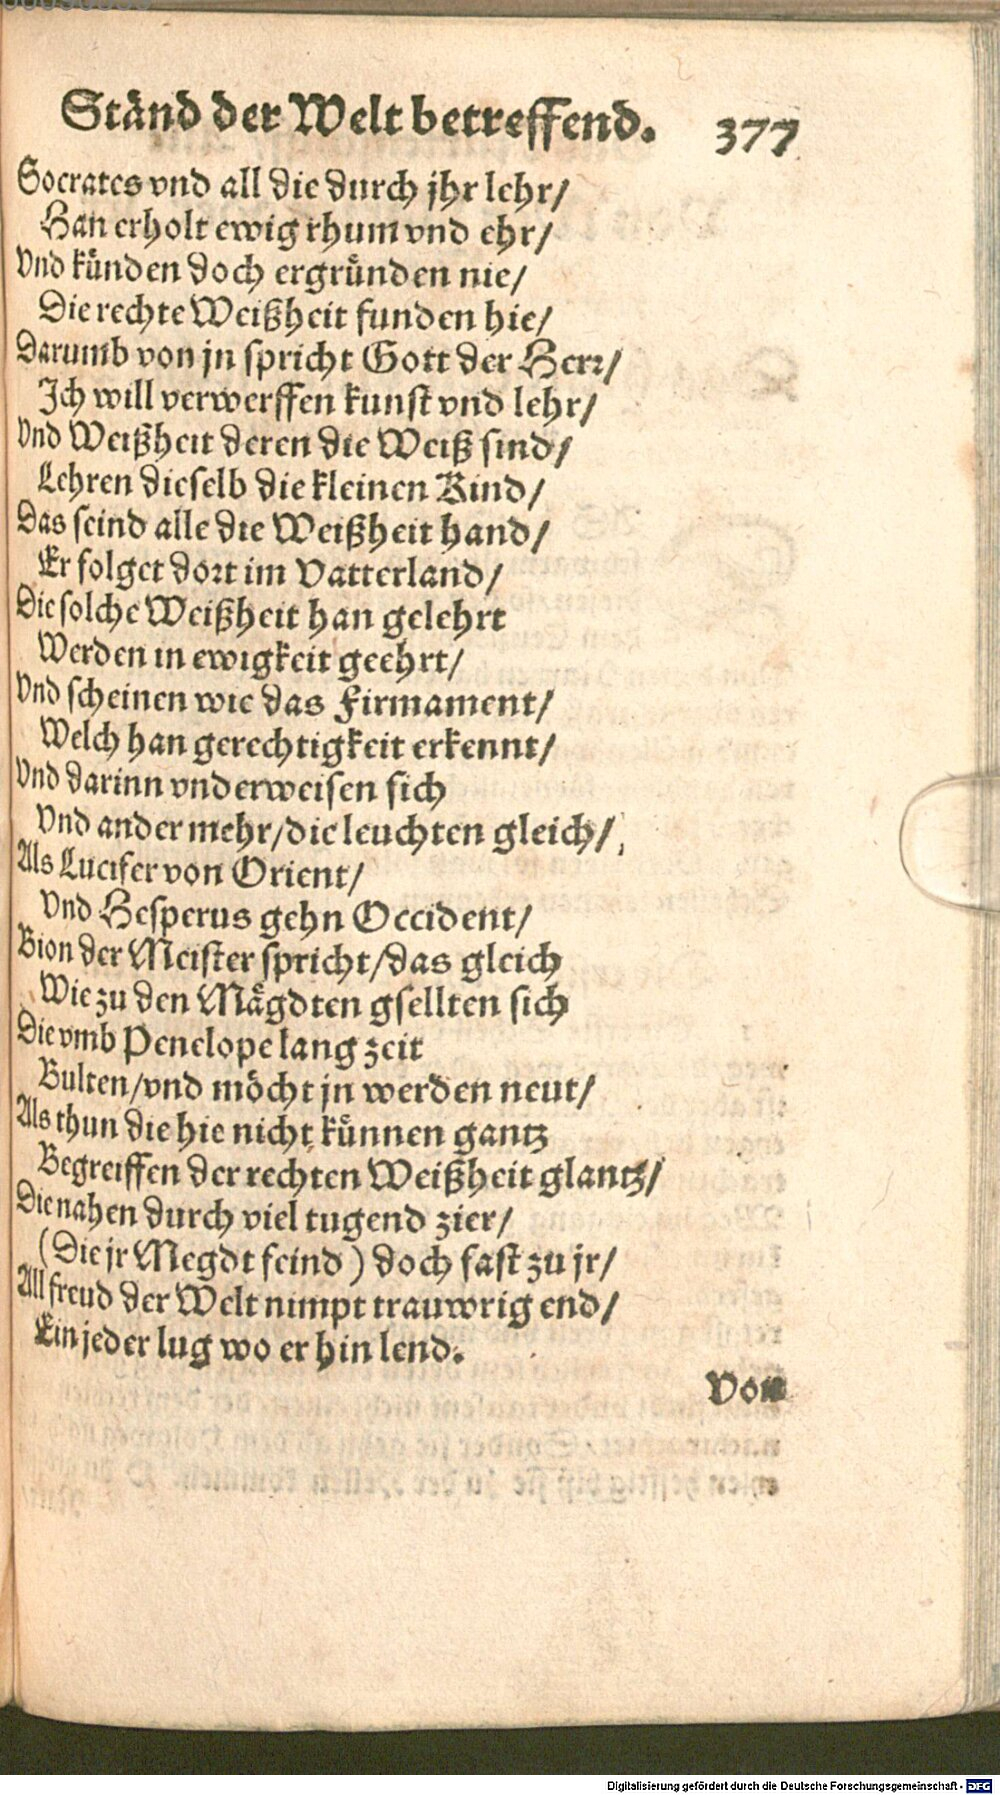 Ständ der Welt betreffend. 377
Socrates vnd all die durch jhr lehr/
Han erholt ewig rhum vnd ehr/
Vnd künden doch ergründen nie/
Die rechte Weißheit funden hie/
Darumb von jn spricht Gott der Herr/
Ich will verwerffen kunst vnd lehr/
Vnd Weißheit deren die Weiß sind/
Lehren dieselb die kleinen Kind/
Das seind alle die Weißheit hand/
Er folget dort im Vatterland/
Die solche Weißheit han gelehrt
Werden in ewigkeit geehrt/
Vnd scheinen wie das Firmament/
Welch han gerechtigkeit erkennt/
Vnd darinn vnderweisen sich
Vnd ander mehr/die leuchten gleich/
Als Lucifer von Orient/
Vnd Hesperus gehn Occident/
Bion der Meister spricht/das gleich
Wie zu den Mägdten gsellten sich
Die vmb Penelope lang zeit
Bulten/vnd möcht jn werden neut/
Als thun die hie nicht künnen gantz
Begreiffen der rechten Weißheit glantz/
Die nahen durch viel tugend zier/
(Die jr Megdt seind) doch fast zu jr/
All freud der Welt nimpt trauwrig end/
Ein jeder lug wo er hin lend.
Von
Digitalisierung gefördert durch die Deutsche Forschungsgemeinschaft - DFG